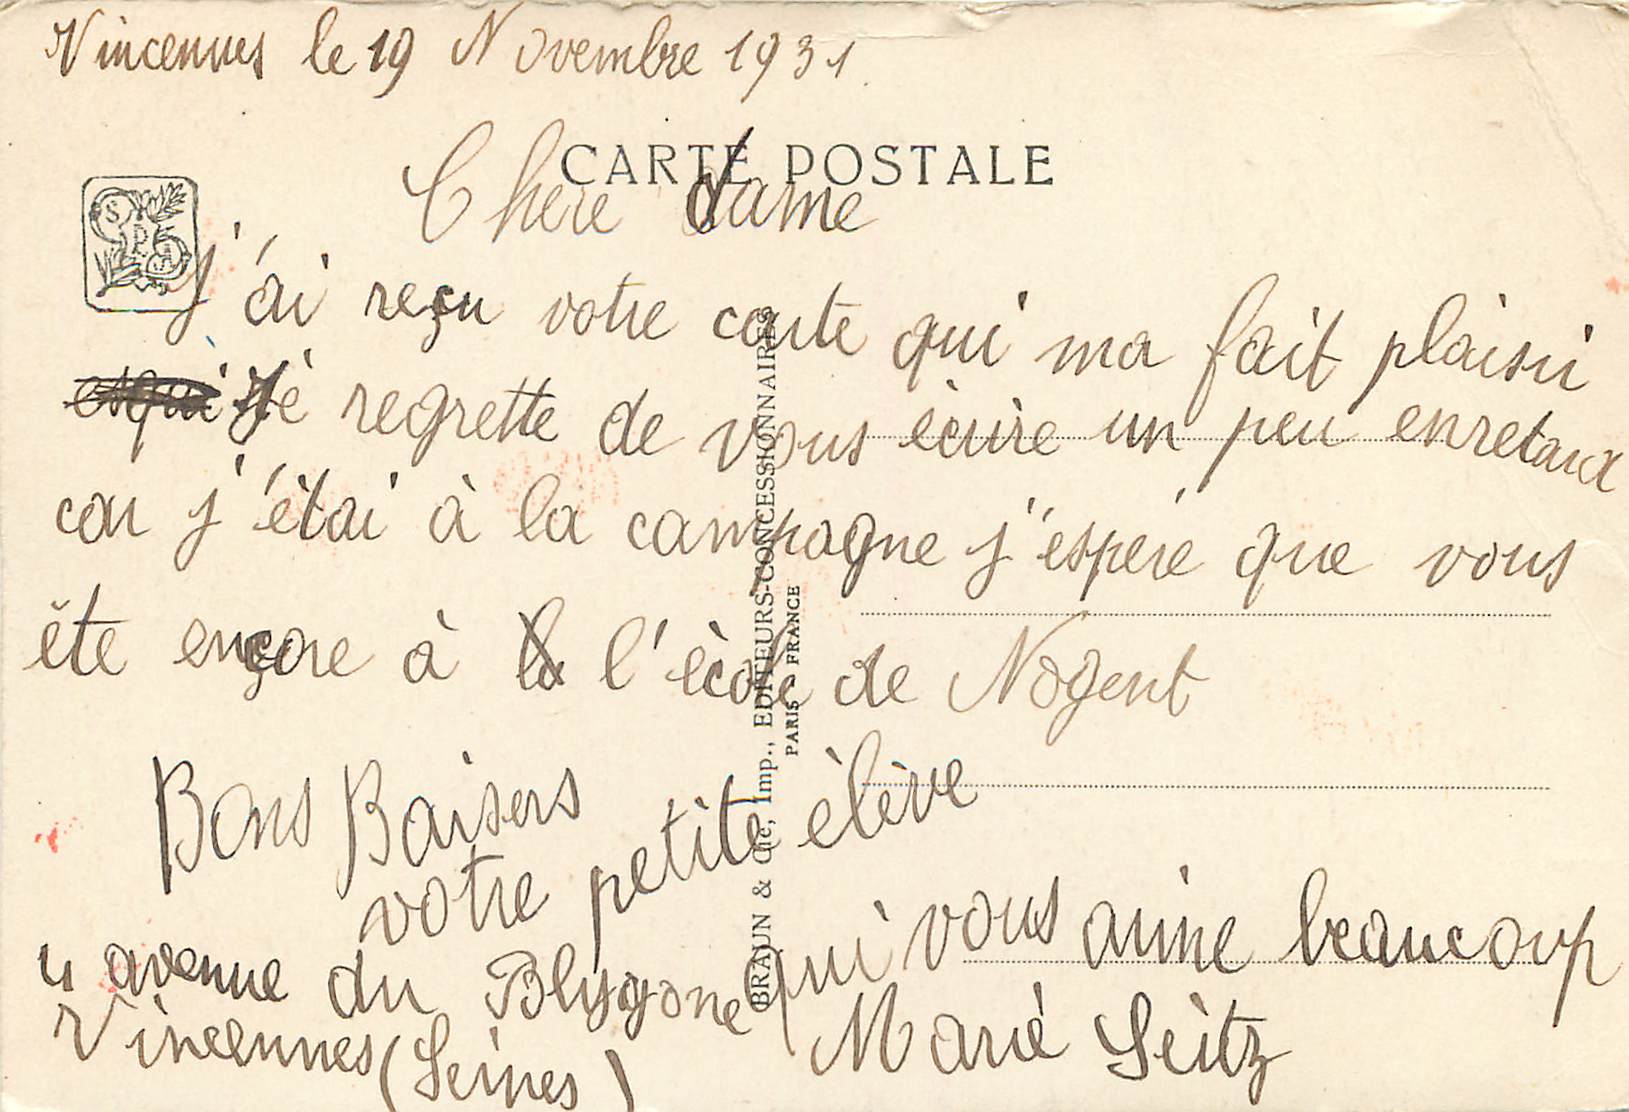 Vincennes le 19 Novembre 1931
CARTE POSTALE
Chère dame
SPA
J'ai reçu votre carte qui ma fait plaisir
Je regrette de vous écrire un peu enretard
car j'étai à la campagne j'espére que vous
ête ençore à l'école de Nogent
Bons Baisers
votre petite élève
qui vous aime beaucoup
avenue du Blygone
Marie Seitz
Vincennes (Seines)
BRAUN & Cie, Imp., EDITEURS-CONCESSIONNAIRES
PARIS - FRANCE